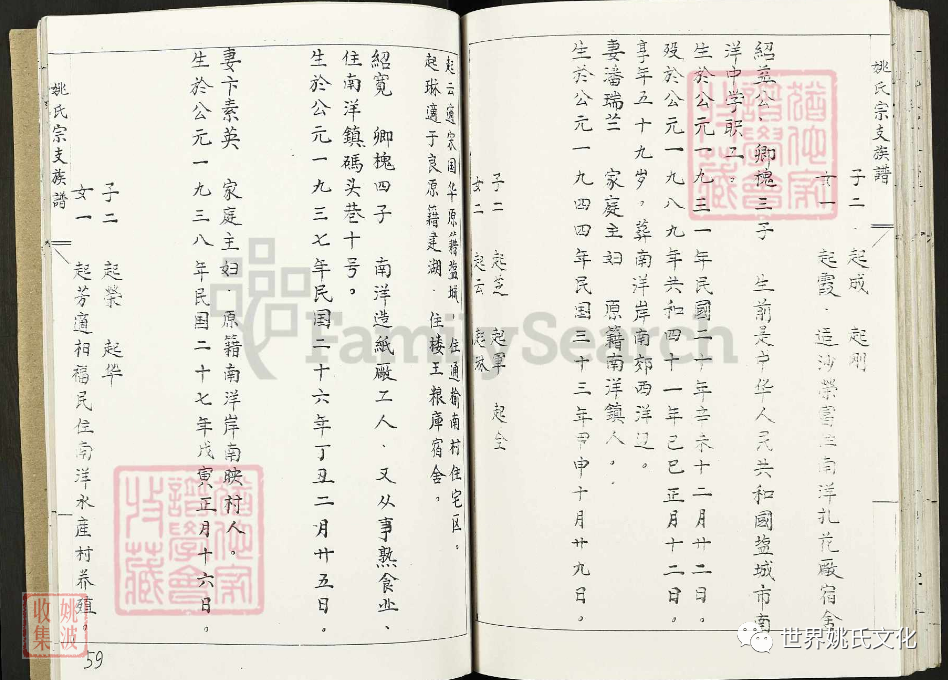 姚氏宗支族譜
子二 起成 起刚
女一 起霞 适沙榮富住南洋扎花廠宿舍
紹益公 卿槐三子 生前是中华人民共和國盐城市南
洋中学职工。
生於公元一九三一年民國二十年辛未十二月廿二日。
殁於公元一九八九年共和四十一年己巳正月十二日。
享年五十九岁，葬南洋岸南郊西洋边。
妻潘瑞兰 家庭主妇 原籍南洋鎮人。
生於公元一九四四年民国三十三年甲申十月廿九日。
子二 起芝 起軍 起全
女二 起云 起琳
起云適宋国华原籍盐城 住通榆南村住宅区。
起琳適于良原籍建湖 住楼王粮庫宿舍。
紹寬 卿槐四子 南洋造紙廠工人 又从事熟食业、
住南洋鎮碼头巷十号。
生於公元一九三七年民国二十六年丁丑二月廿五日。
妻卞素英 家庭主妇 原籍南洋岸南映村人。
生於公元一九三八年民国二十七年戊寅正月十六日。
子二 起榮 起华
女一 起芳適相福民住南洋水産村养殖。
姚氏宗支族譜
59
FamilySearch
姚波
收集
世界姚氏文化